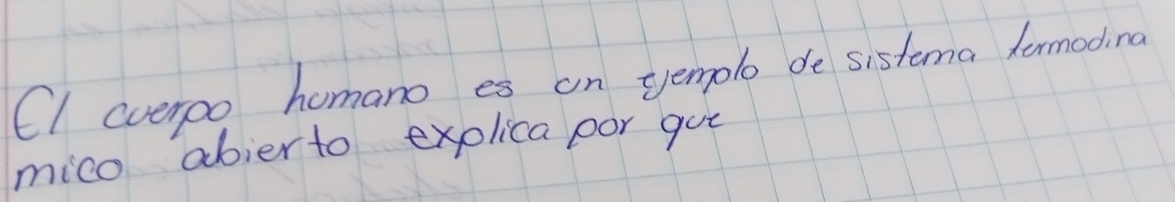 El cuerpo humano es un ejemplo de sistema termodina
mico abierto explica por que